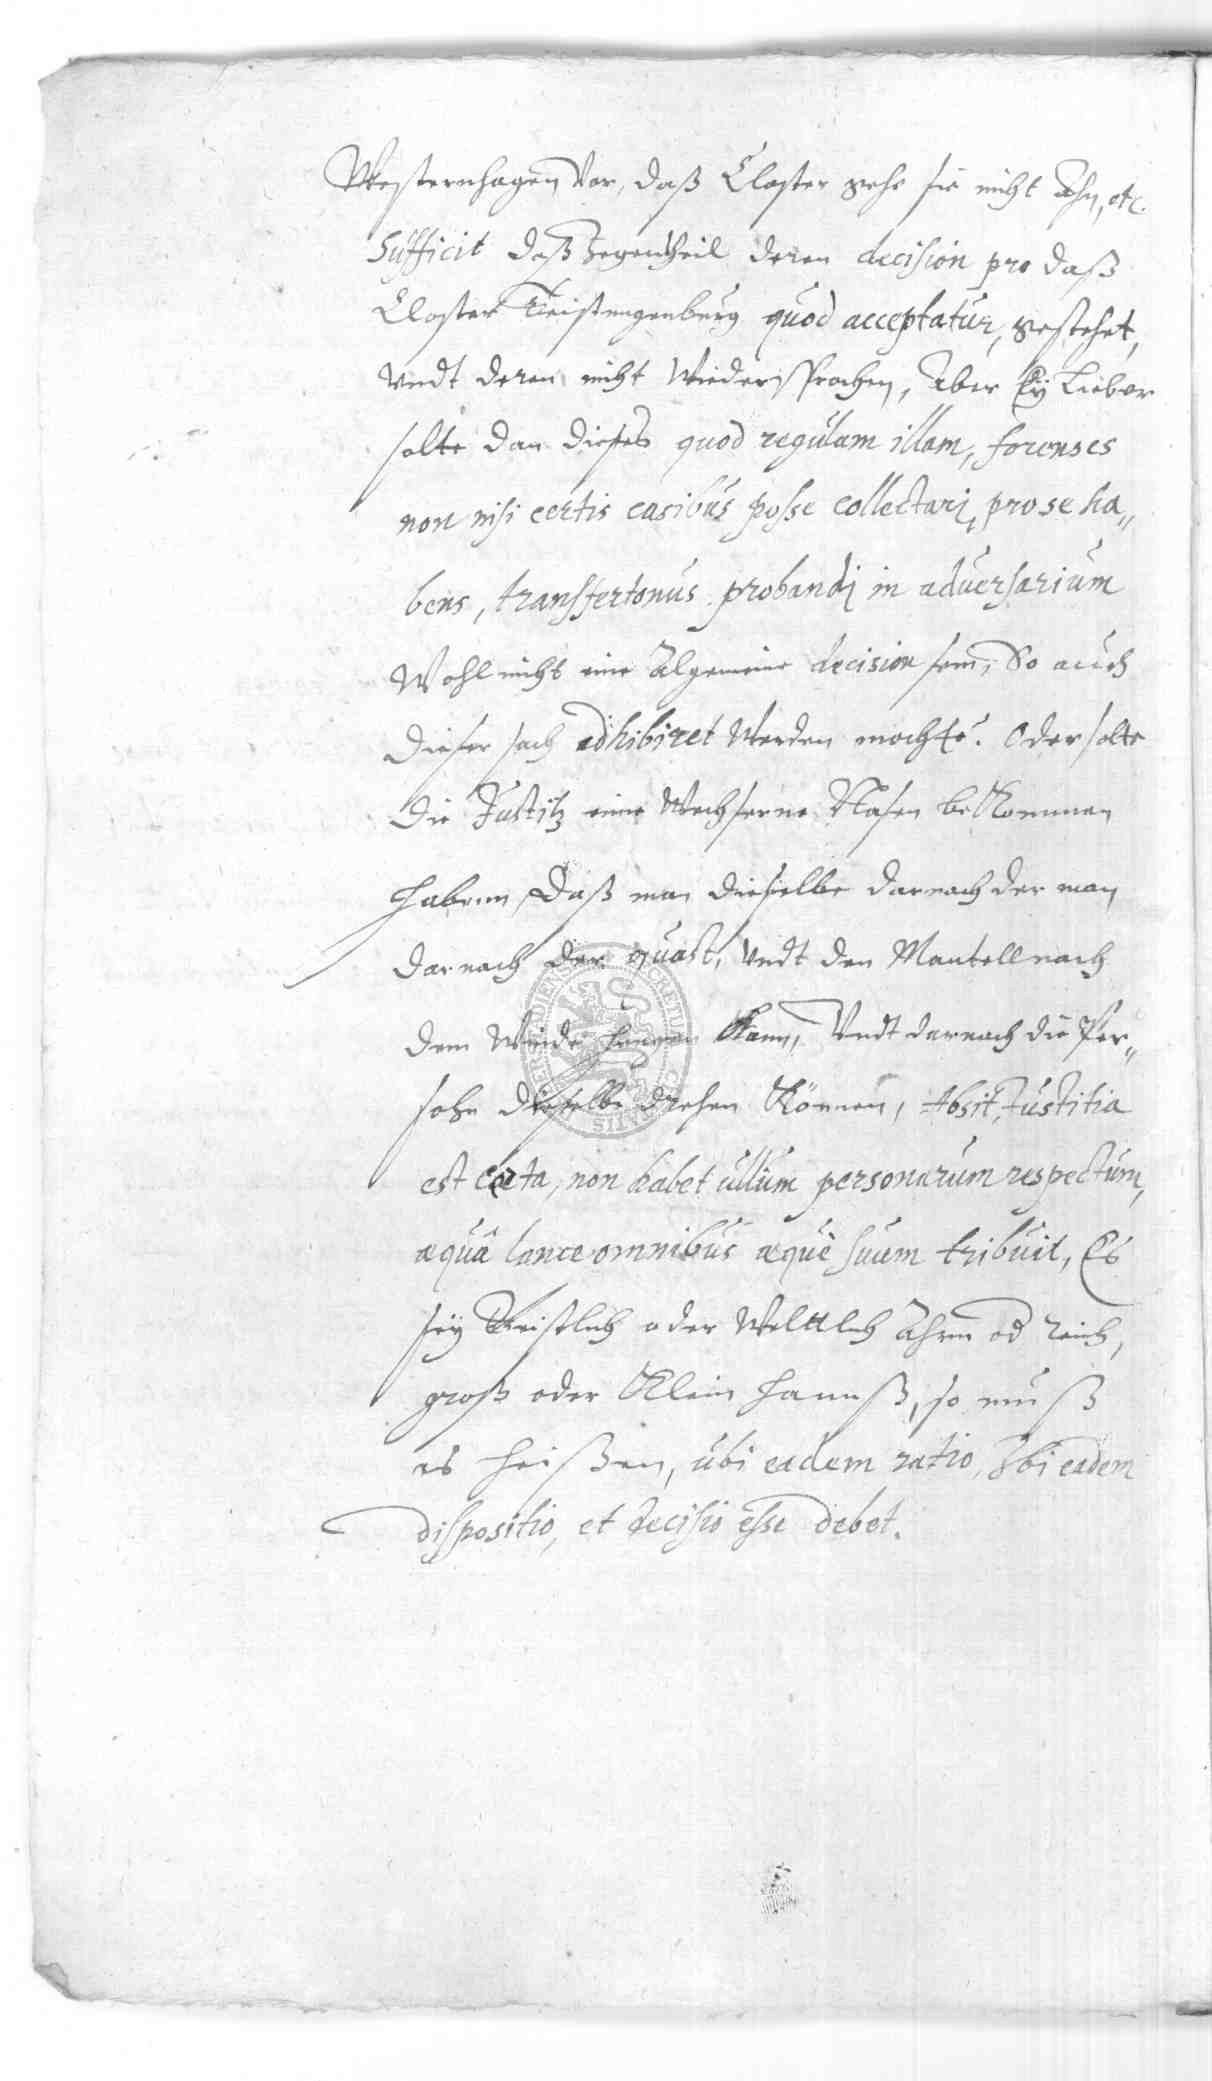 Westernhagen vor, daß Closter gehe sie nicht Ahn, etc.
Sufficit daß gegentheil deren decision pro daß
Closter Teistungenburg quod acceptatur, gestehet,
Undt deren nicht Wiedersprochen, Aber Ey Lieber
solte dan dieses quod regulam illam, forenses
non nisi certis casibus posse collectari, pro se ha„
bens, transfert onus probandi in adversarium
Wohl nicht eine Algemeine decision sein, So auch
dieser sach adhibiret Werden mochte. Oder solte
die Justitz eine Wechserne Nasen beKommen
haben, daß man dieselbe darnach der man
darnach der quast, Undt den Mantell nach
dem Winde hengen Kann, Undt darnach die Per„
sohn dieselbe drehen Können, Absit, Justitia
est certa, non habet ullum personarum respectum,
æquâ lance omnibus æquè suum tribuit, Es
sey Geistlich oder Weltlich Ahrm od reich,
groß oder Klein hannß, so muß
es heißen, ubi eadem ratio, Ibi eadem
dispositio, et decisio esse debet.